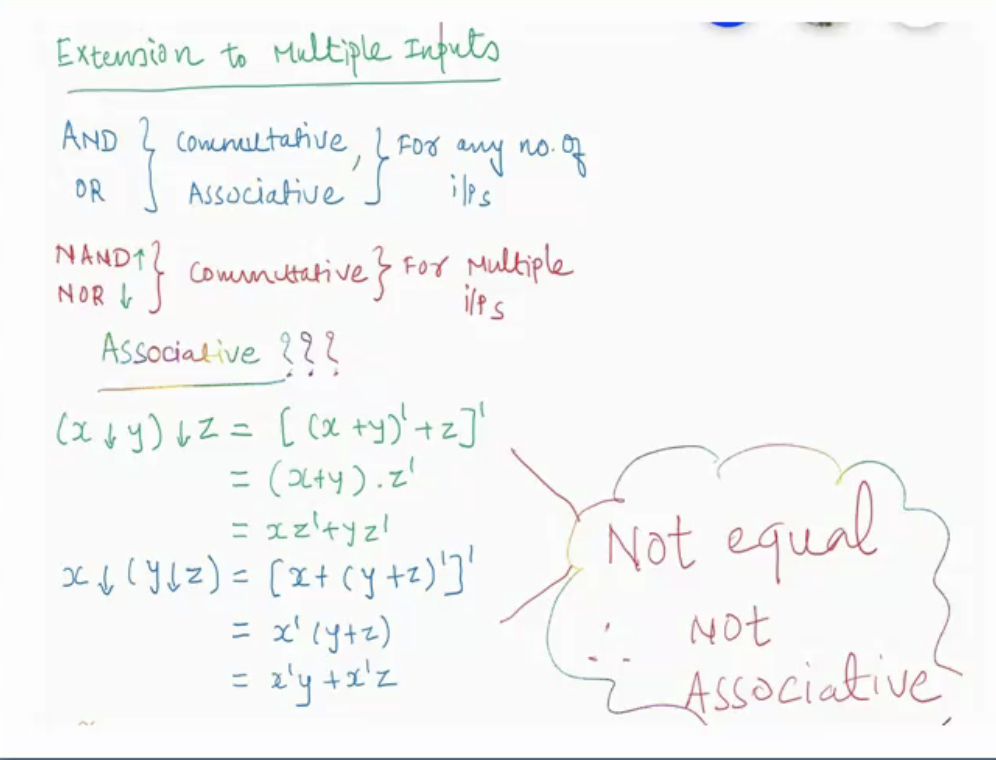 Extension to Multiple Inputs
AND
OR
} Commutative,
Associative
} For any no. of
i/ps
NAND↑
NOR ↓
} Commutative } For Multiple
i/ps
Associative ???
(x ↓ y) ↓ z = [(x + y)' + z]'
= (x+y).z'
= xz'+yz'
x ↓ (y↓z) = [x + (y + z)']'
= x'(y+z)
= x'y + x'z
Not equal
∴ NOT
Associative